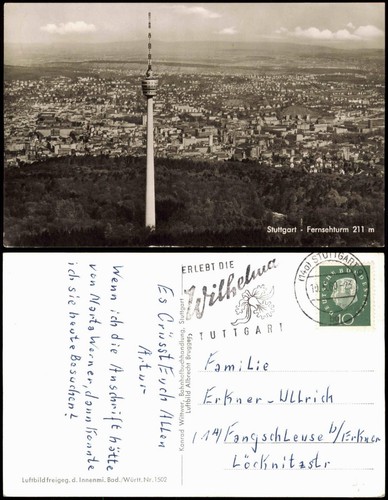 Stuttgart - Fernsehturm 211 m
ERLEBT DIE
Wilhelma
STUTTGART
(14a) STUTTGART
DEUTSCHE BUNDESPOST
10
Es Grüsst Euch Allen
Artur
Wenn ich die Anschrift hätte
von Marta Werner, dann könnte
ich sie heute Besuchen!
Konrad Wittwer, Bahnhofbuchhandlung, Stuttgart
Luftbild Albrecht Brugger
Familie
Erkner-Ullrich
(1A) Fangschleuse b/Erkner
Löcknitzstr.
Luftbildfreigeg. d. Innenmi. Bad./Württ. Nr. 1503